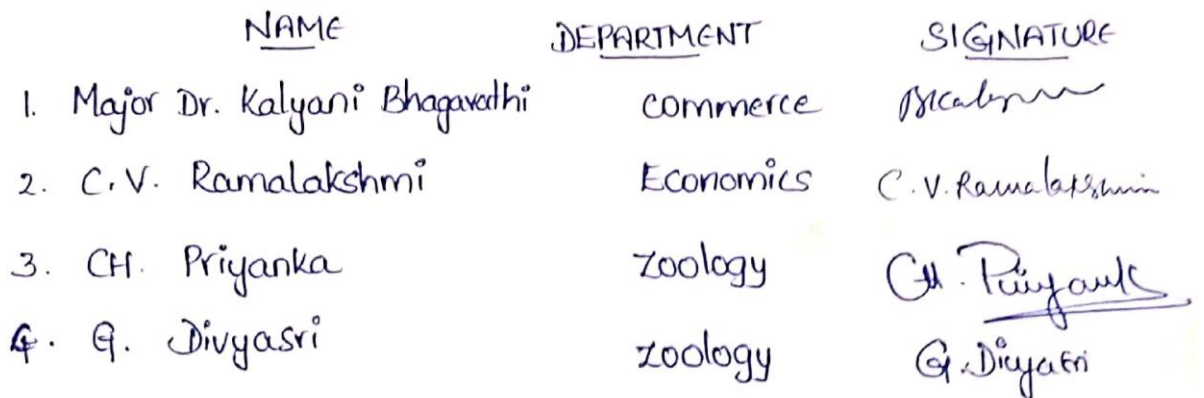 NAME DEPARTMENT SIGNATURE
1. Major Dr. Kalyani Bhagavathi commerce BKalyani
2. C.V. Ramalakshmi Economics C.V. Ramalakshmi
3. CH. Priyanka Zoology CH. Priyanka
4. G. Divyasri Zoology G. Divyasri